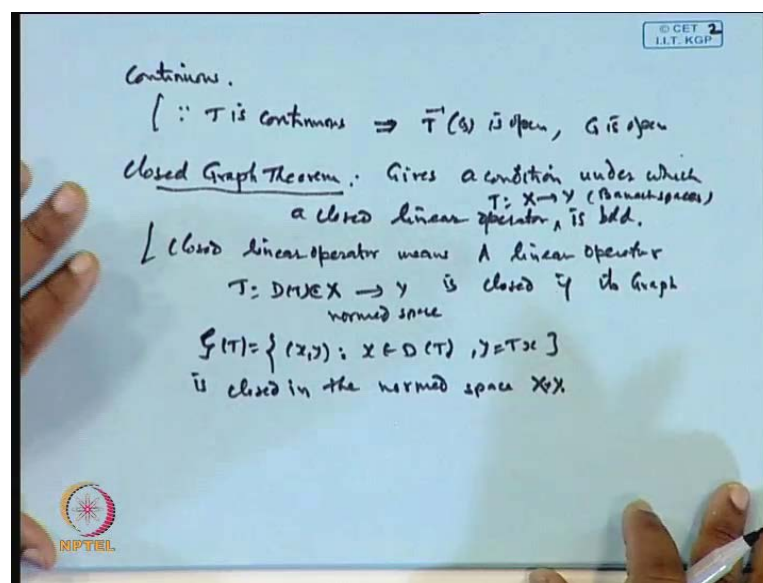 © CET 2
I.I.T. KGP
Continuous.
[ ∵ T is continuous ⇒ T⁻¹(G) is open, G is open
Closed Graph Theorem: Gives a condition under which
T: X → Y (Banach spaces)
a closed linear operator ^ is bdd.
[ Closed linear operator means A linear operator
T: D(T) ⊂ X → Y is closed if its Graph
normed space
G(T) = { (x,y) : x ∈ D(T) , y = Tx }
is closed in the normed space X×Y.
NPTEL